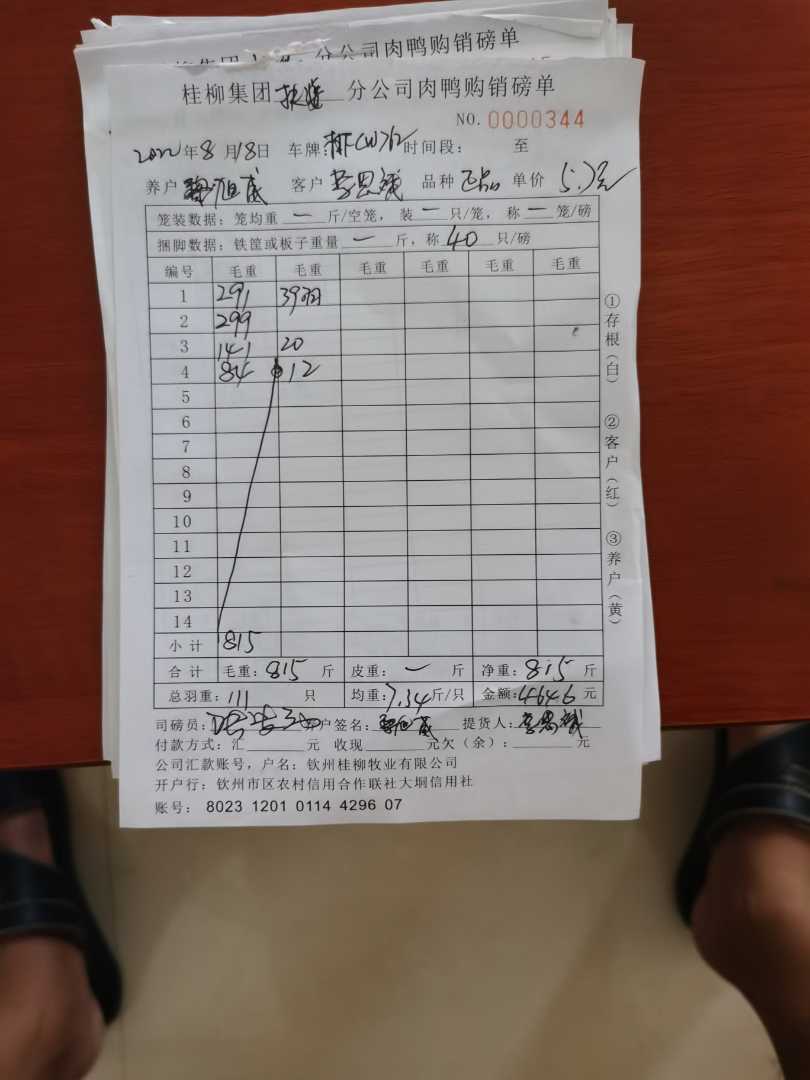 分公司肉鸭购销磅单
桂柳集团 分公司肉鸭购销磅单
NO. 0000344
2022年8月18日 车牌: 时间段: 至
养户 客户 李恩 品种 正品 单价 5.7元
笼装数据:笼均重 一 斤/空笼,装 一 只/笼,称 一 笼/磅
捆脚数据:铁筐或板子重量 一 斤,称 40 只/磅
编号 毛重 毛重 毛重 毛重 毛重 毛重
1 291 39羽
2 299
3 141 20
4 84 12
5
6
7
8
9
10
11
12
13
14
小计 815
合计 毛重:815 斤 皮重:一 斤 净重:815 斤
总羽重:111 只 均重:7.34斤/只 金额:4646元
司磅员: 户签名: 提货人:李恩
付款方式:汇 元 收现 元欠(余): 元
公司汇款账号,户名:钦州桂柳牧业有限公司
开户行:钦州市区农村信用合作联社大垌信用社
账号: 8023 1201 0114 4296 07
①存根(白)
②客户(红)
③养户(黄)